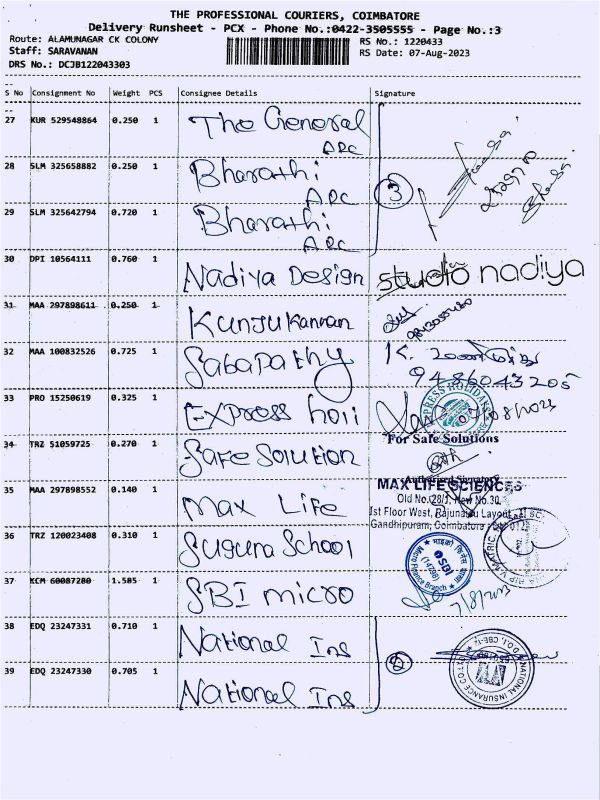 THE PROFESSIONAL COURIERS, COIMBATORE
Delivery Runsheet - PCX - Phone No.:0422-3505555 - Page No.:3
Route: ALAMUNAGAR CK COLONY RS No.: 1220433
Staff: SARAVANAN RS Date: 07-Aug-2023
DRS No.: DCJB122043303
S No Consignment No Weight PCS Consignee Details Signature
27 KUR 529548864 0.250 1 The General
APC
28 SLM 325658882 0.250 1 Bharathi
APC
3
29 SLM 325642794 0.720 1 Bharathi
APC
30 DPI 10564111 0.760 1 Nadiya Design studio nadiya
31 MAA 297898611 0.250 1 Kunjukannan
32 MAA 100832526 0.725 1 Sabapathy K.
9486043205
33 PRO 15250619 0.325 1 Express holi EXPRESS HOLIDAYS 07/08/2023
"For Safe Solutions
34 TRZ 51059725 0.270 1 Safe Solution
Authorised Signatory
35 MAA 297898552 0.140 1 Max Life MAX LIFE SCIENCES
Old No.28/3, New No.30,
Ist Floor West, Rajunaidu Layout,
Gandhipuram, Coimbatore
36 TRZ 120023408 0.310 1 Suguna School
37 KCM 60087280 1.585 1 SBI micro SBI (14298) Micro Finance Branch
7/8/2023
38 EDQ 23247331 0.710 1 National Ins
2
NATIONAL INSURANCE
39 EDQ 23247330 0.705 1 National Ins